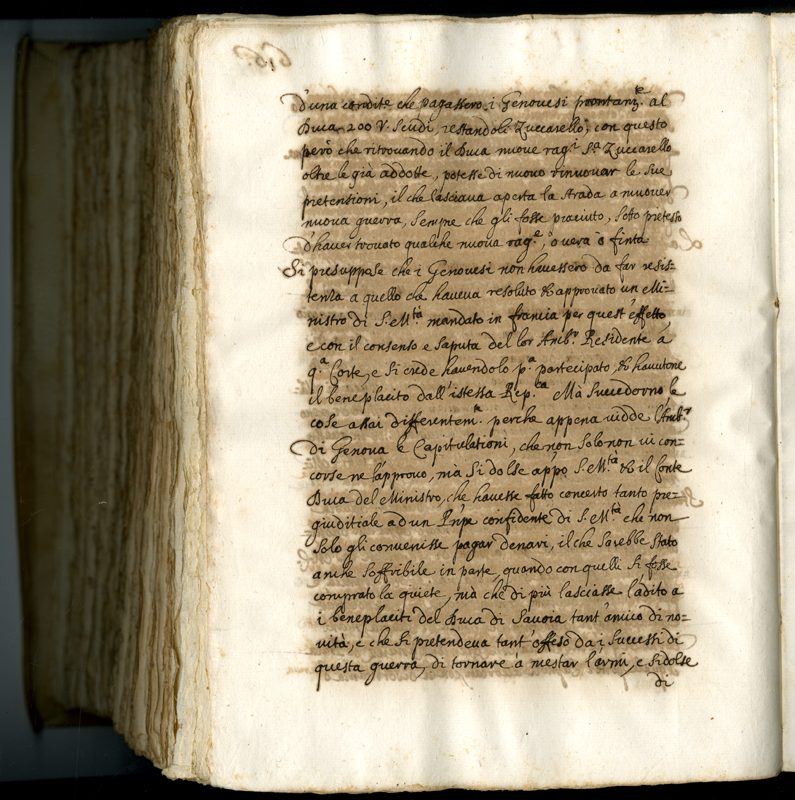 d'una condite che pagassero i Genovesi prontam.te al
Duca 200 V. Scudi, restandoli Zuccarello; con questo
però che ritrovando il Duca nuove rag.i S.a Zuccarello
oltre le già addotte, potesse di nuovo rinuovar le sue
pretensioni, il che lasciava aperta la strada a muover
nuova guerra, sempre che gli fosse piaciuto, sotto pretesto
d'haver trovato qualche nuova rag.e, ò vera ò finta
Si presuppose che i Genovesi non havessero da far resis=
tenza a quello che haveva resoluto & approvato un Mi=
nistro di S. M.tà mandato in francia per quest'effetto
e con il consenso e saputa del lor Amb.r Residente à
q.a Corte, e si crede havendolo p.a partecipato, & havutone
il beneplacito dall'istessa Rep.ca Mà succedorno le
cose assai differentem.te perche appena vidde l'Amb.r
di Genova le Capitulationi, che non solo non vi con=
corse ne l'approvò, mà si dolse appo S. M.tà & il Conte
Duca del Ministro, che havesse fatto concerto tanto pre=
giuditiale ad un Pnpe confidente di S. M.tà che non
solo gli convenisse pagar denari, il che sarebbe stato
anche soffribile in parte, quando con quelli si fosse
comprato la quiete, mà che di più lasciasse l'adito a
i beneplaciti del Duca di Savoia tant'amico di no=
vità, e che si pretendeva tant'offeso da i Successi di
questa guerra, di tornare à mestar l'armi, e si dolse
di